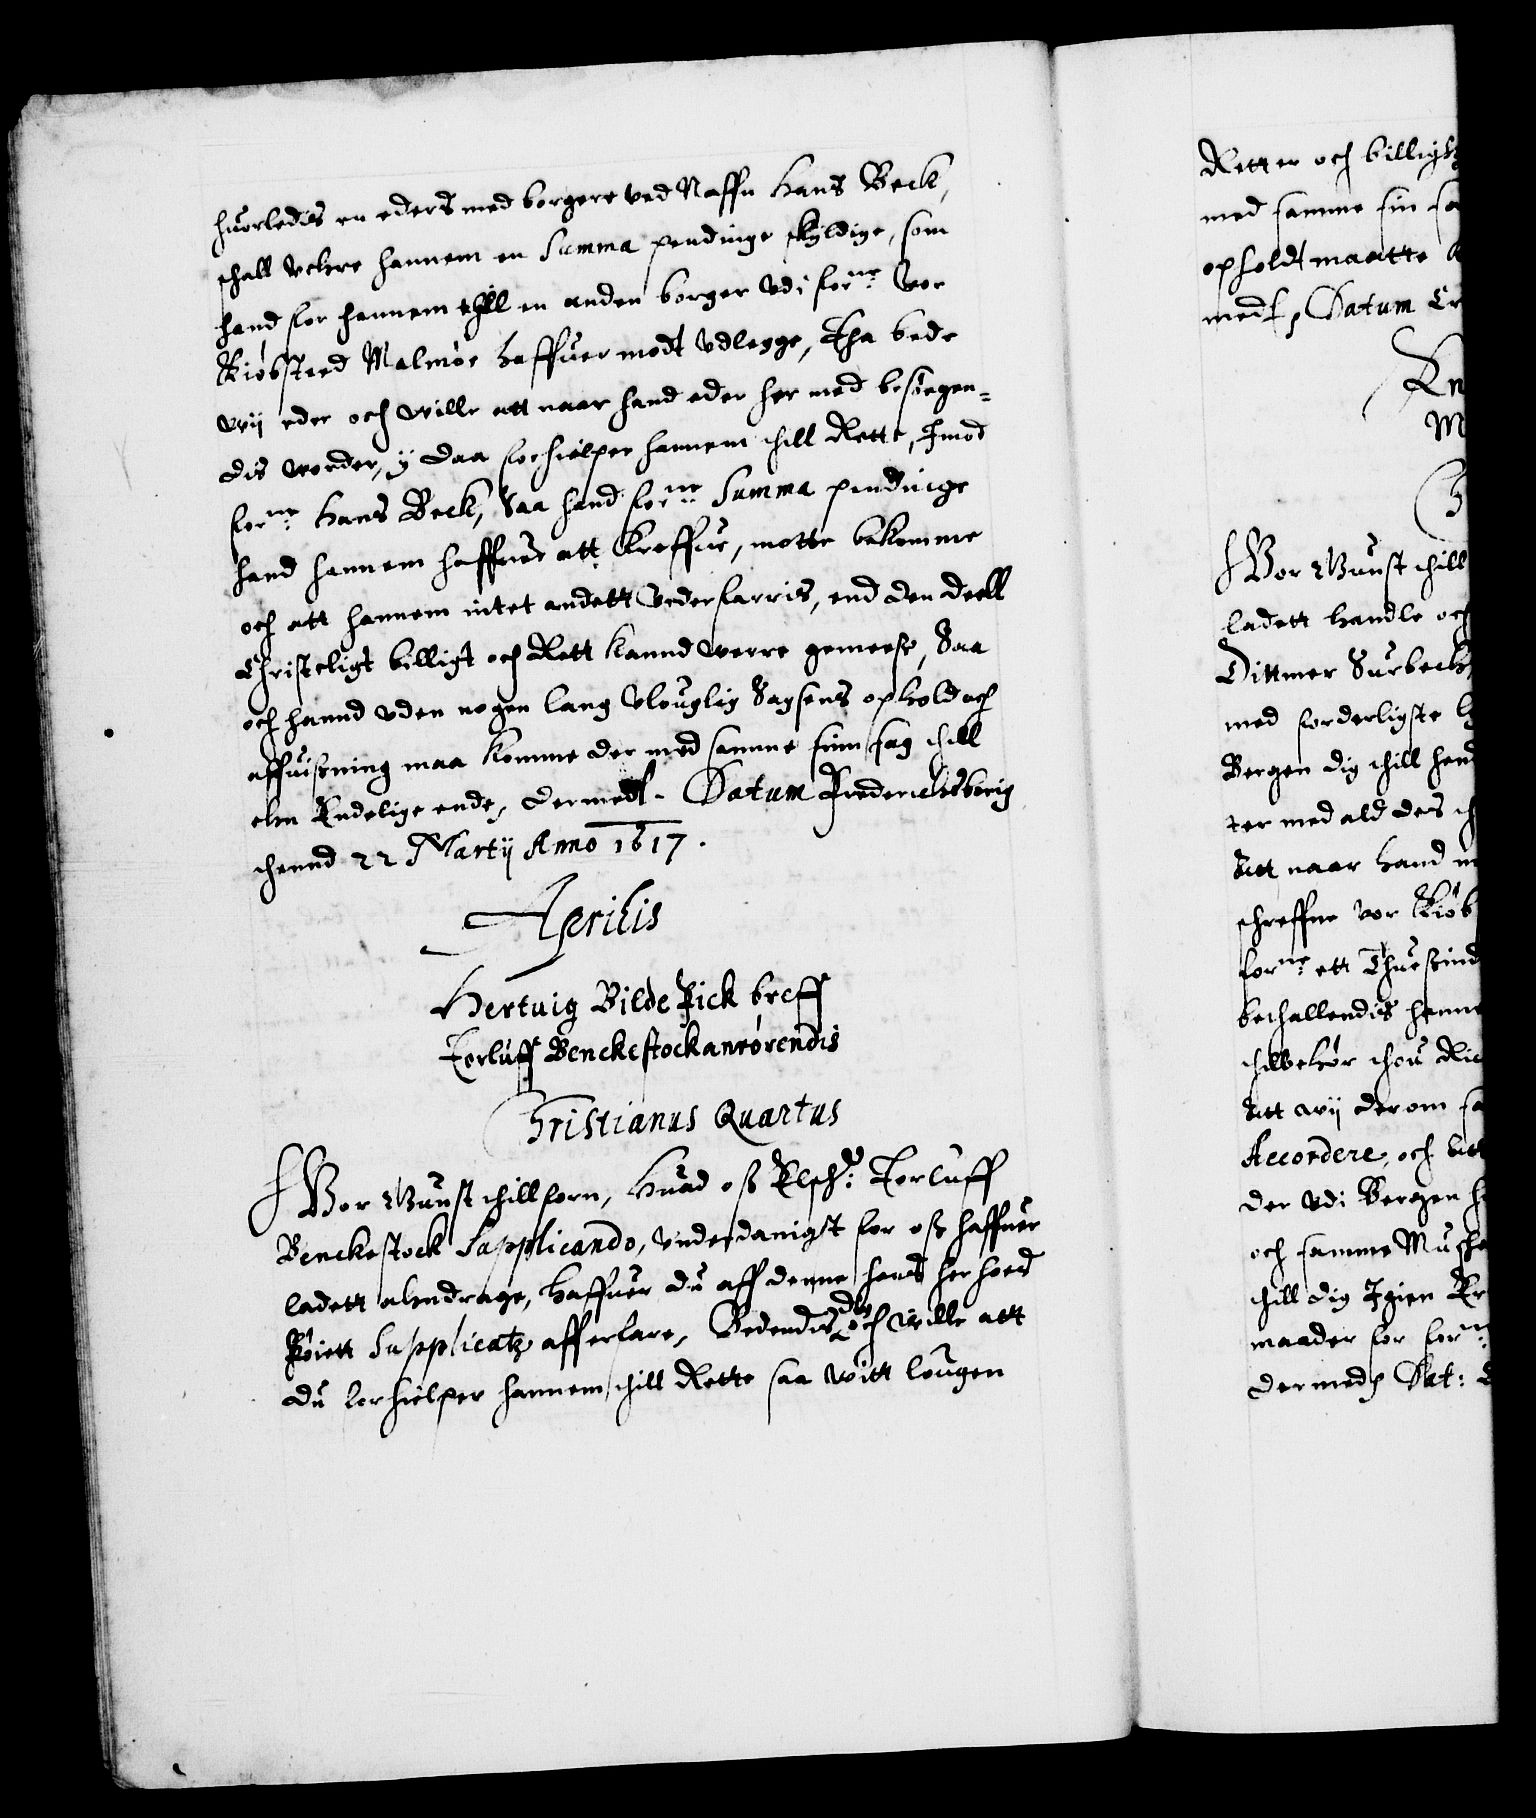 huorledis en eders med borgere ved Naffn Hans Beck,
schall vehre hannem en Summa pendinge skyldige, som
hand for hannem thill en anden borger vdi forne: vor
Kiøbsted Malmøe haffuer modt vdlegge, Tha bede
wij eder och wille att naar hand eder her med besøgen-
dis worder, y daa forhielper hannem thill Rette, Imod
forne: Hans Beck, Saa hand forne: Summa pendinge
hand hannem haffuer att kreffue, motte bekomme
och att hannem intet andett vederfarris, end den deell
Christeligt billigt och Rett kannd werre gemeess, Saa
och hannd vden nogen lang vlouglig Sagsens ophold och
affuisning maa komme der med samme sinn sag thill
ehn Endelige ende, dermedt. Datum Frederichsborig
thennd 22 Martij Anno 1617.
Aprilis
Hertuig Bilde Fick breff
Torluff Benckestock anrørendis
Christianus Quartus
Vor Gunst thillforn, Huad oss Elsch: Torluff
Benckestock Supplicando, vnderdanigst for oss haffuer
ladett ahndrage, haffuer du aff denne hans her hoes
Føiett Supplicatz afferfare, Bedendis dig och wille att
du forhielper hannem thill Rette saa witt lougen
Retten och billigh
med samme sin sa
opholdt maatte
medt, Datum Cr
Vor Gunst thill
ladett handle och
Dittmer Surbeck,
med forderligste
Bergen dig thill hend
ter med ald des
Att naar hand
schreffne vor Kiøb
forne: ett Thuesind
bethallendis hanne
thilbehør thou
Att wij derom sa
Accordere, och
der vdi Bergen
och samme
thill dig Igien
maader for forne:
dermedt Dat: